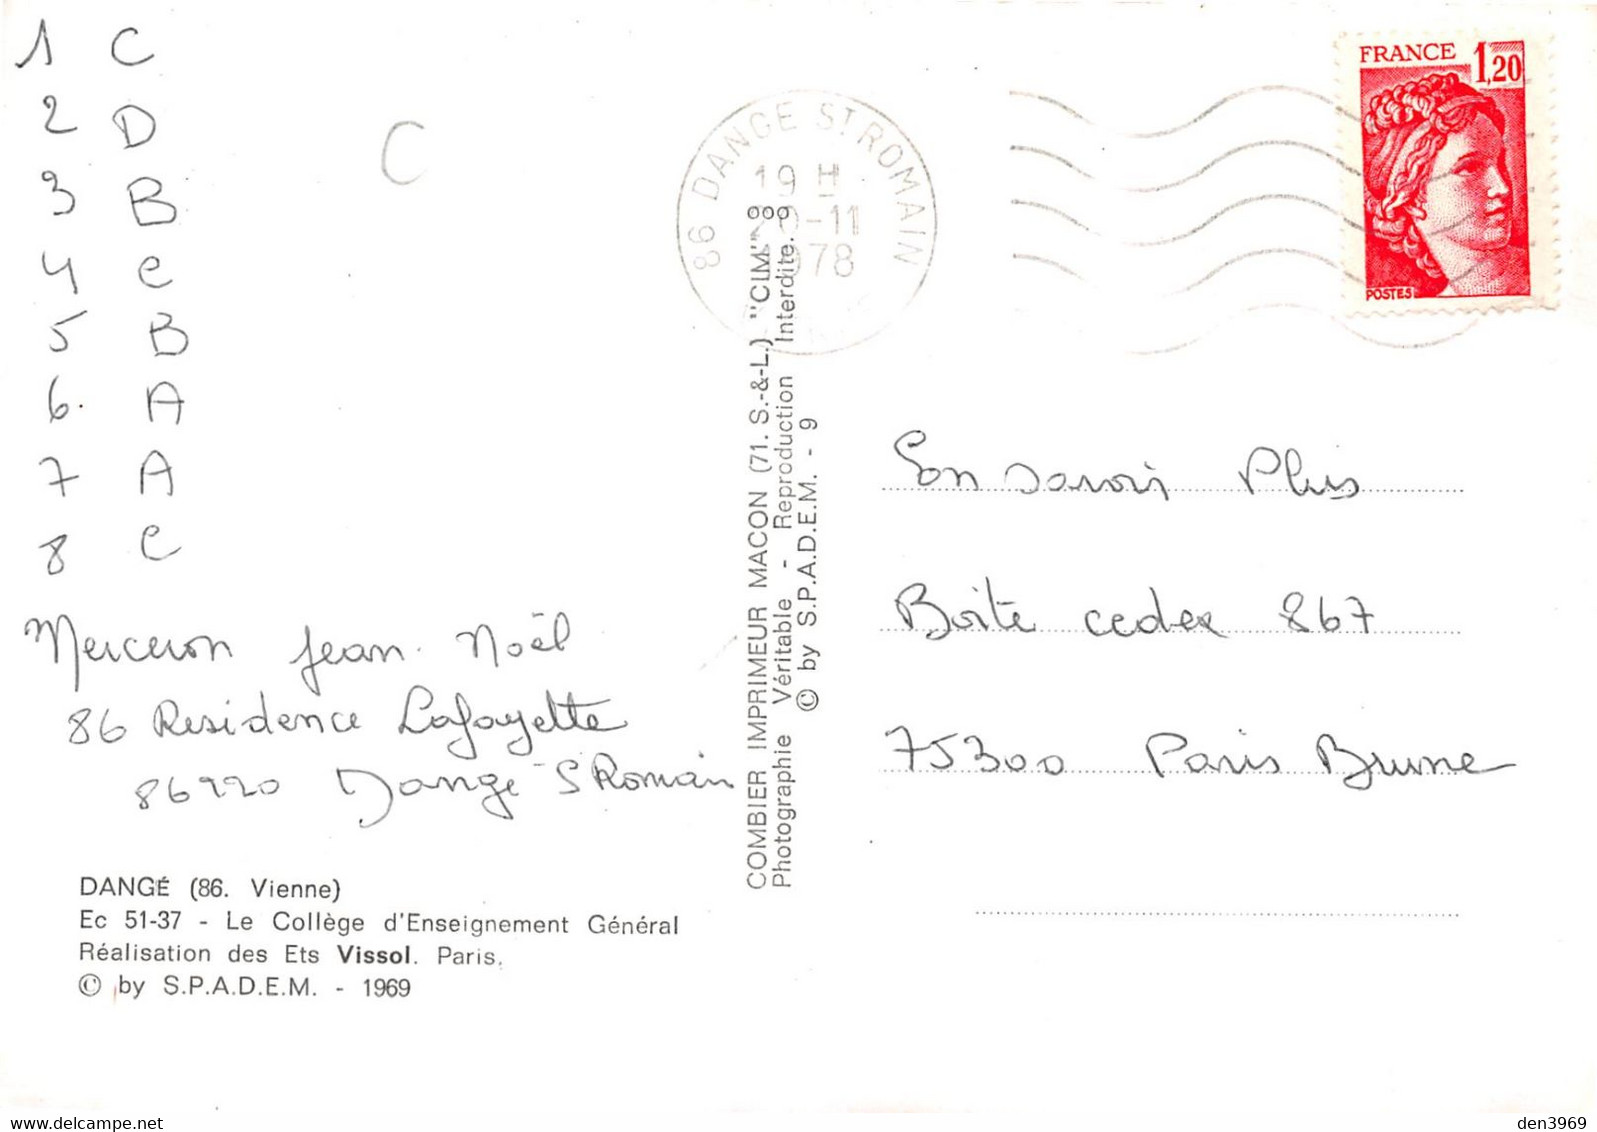 1 C
2 D
3 B
4 C
5 B
6. A
7 A
8 C
C
Merceron Jean-Noël
86 Residence Lafayette
86220 Dangé St Romain
DANGÉ (86. Vienne)
Ec 51-37 - Le Collège d'Enseignement Général
Réalisation des Ets Vissol. Paris.
© by S.P.A.D.E.M. - 1969
COMBIER IMPRIMEUR MACON (71. S.-&-L.) "CIM"
Photographie Véritable - Reproduction Interdite.
© by S.P.A.D.E.M. - 9
86 DANGE ST ROMAIN
19 H
20-11
1978
FRANCE 1,20
POSTES
En savoir Plus
Boîte cedex 867
75300 Paris Brune
den3969